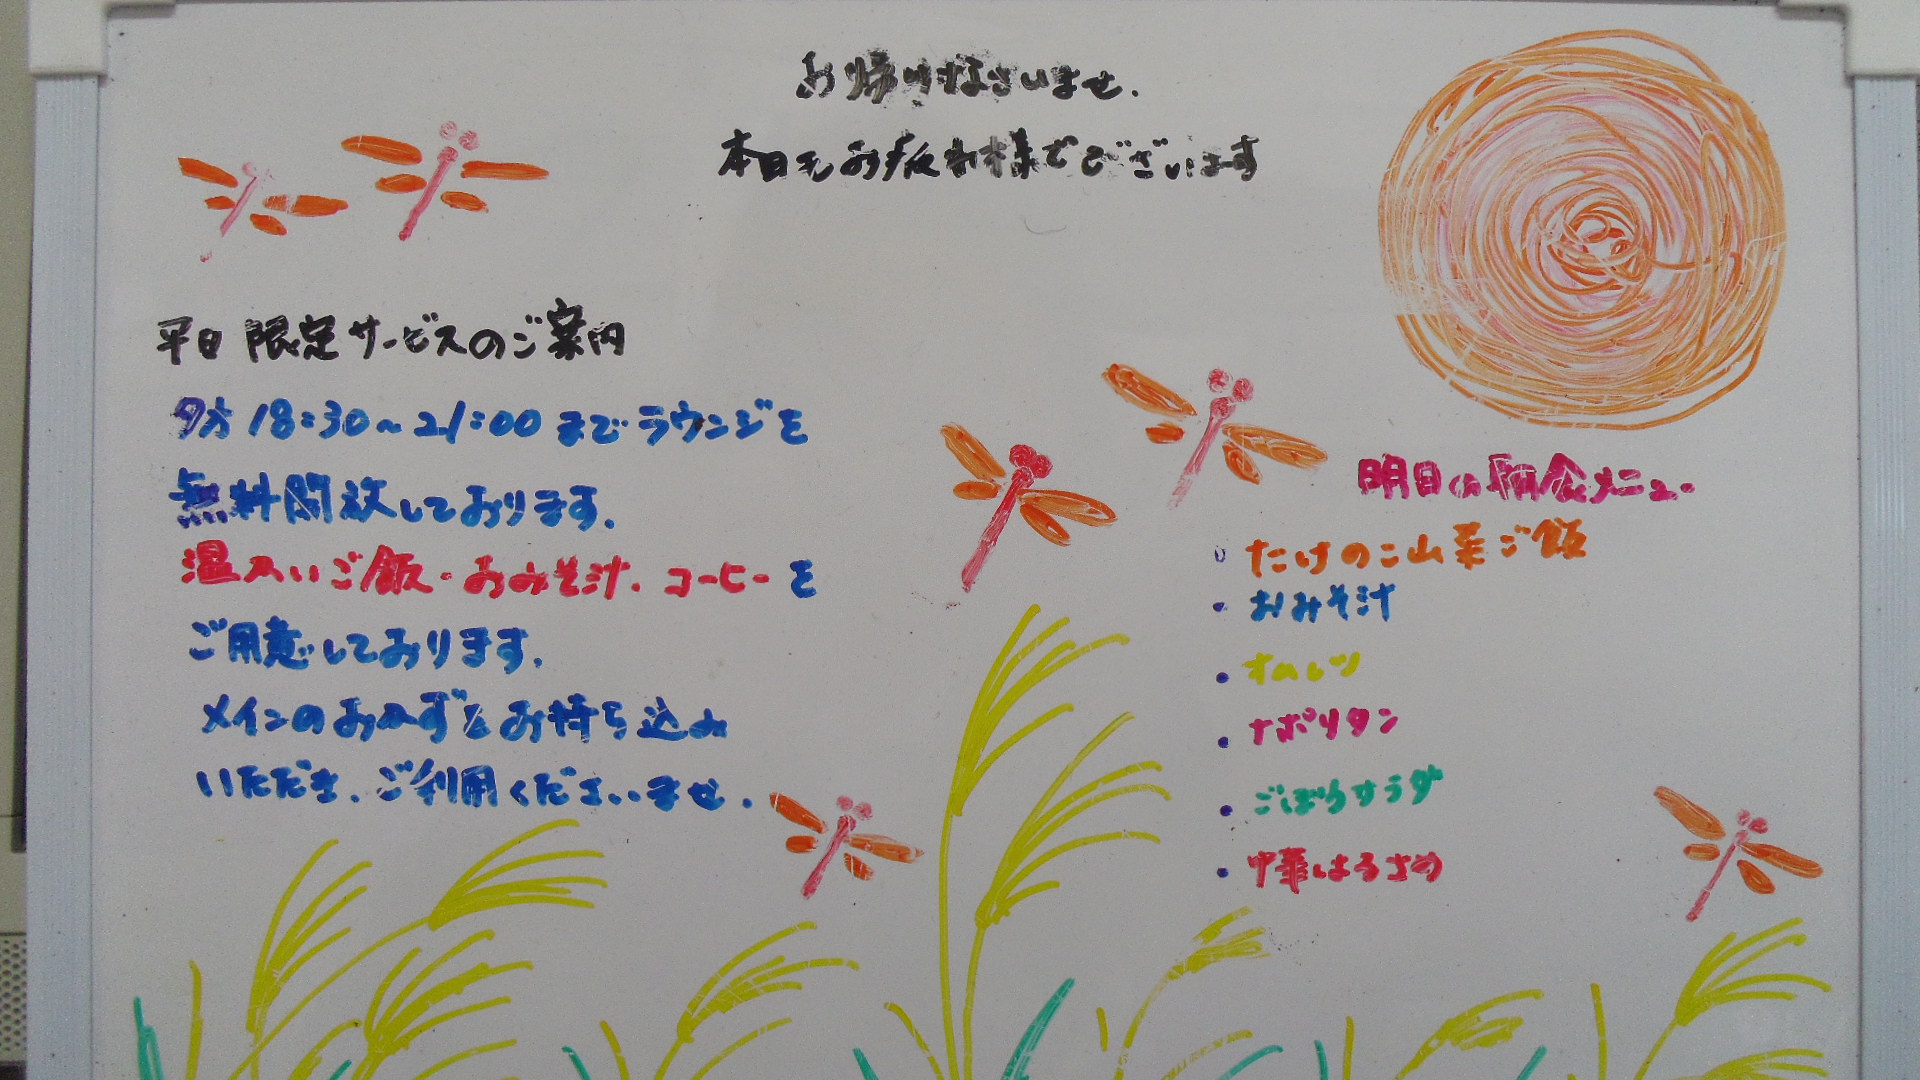 お帰りなさいませ.
本日もお疲れ様でございます
平日限定サービスのご案内
夕方18:30~21:00までラウンジを
無料開放しております.
温かいご飯・おみそ汁.コーヒーを
ご用意しております.
メインのおかずをお持ち込み
いただき.ご利用くださいませ.
明日の朝食メニュー
・たけのこ山菜ご飯
・おみそ汁
・オムレツ
・ナポリタン
・ごぼうサラダ
・中華はるさめ